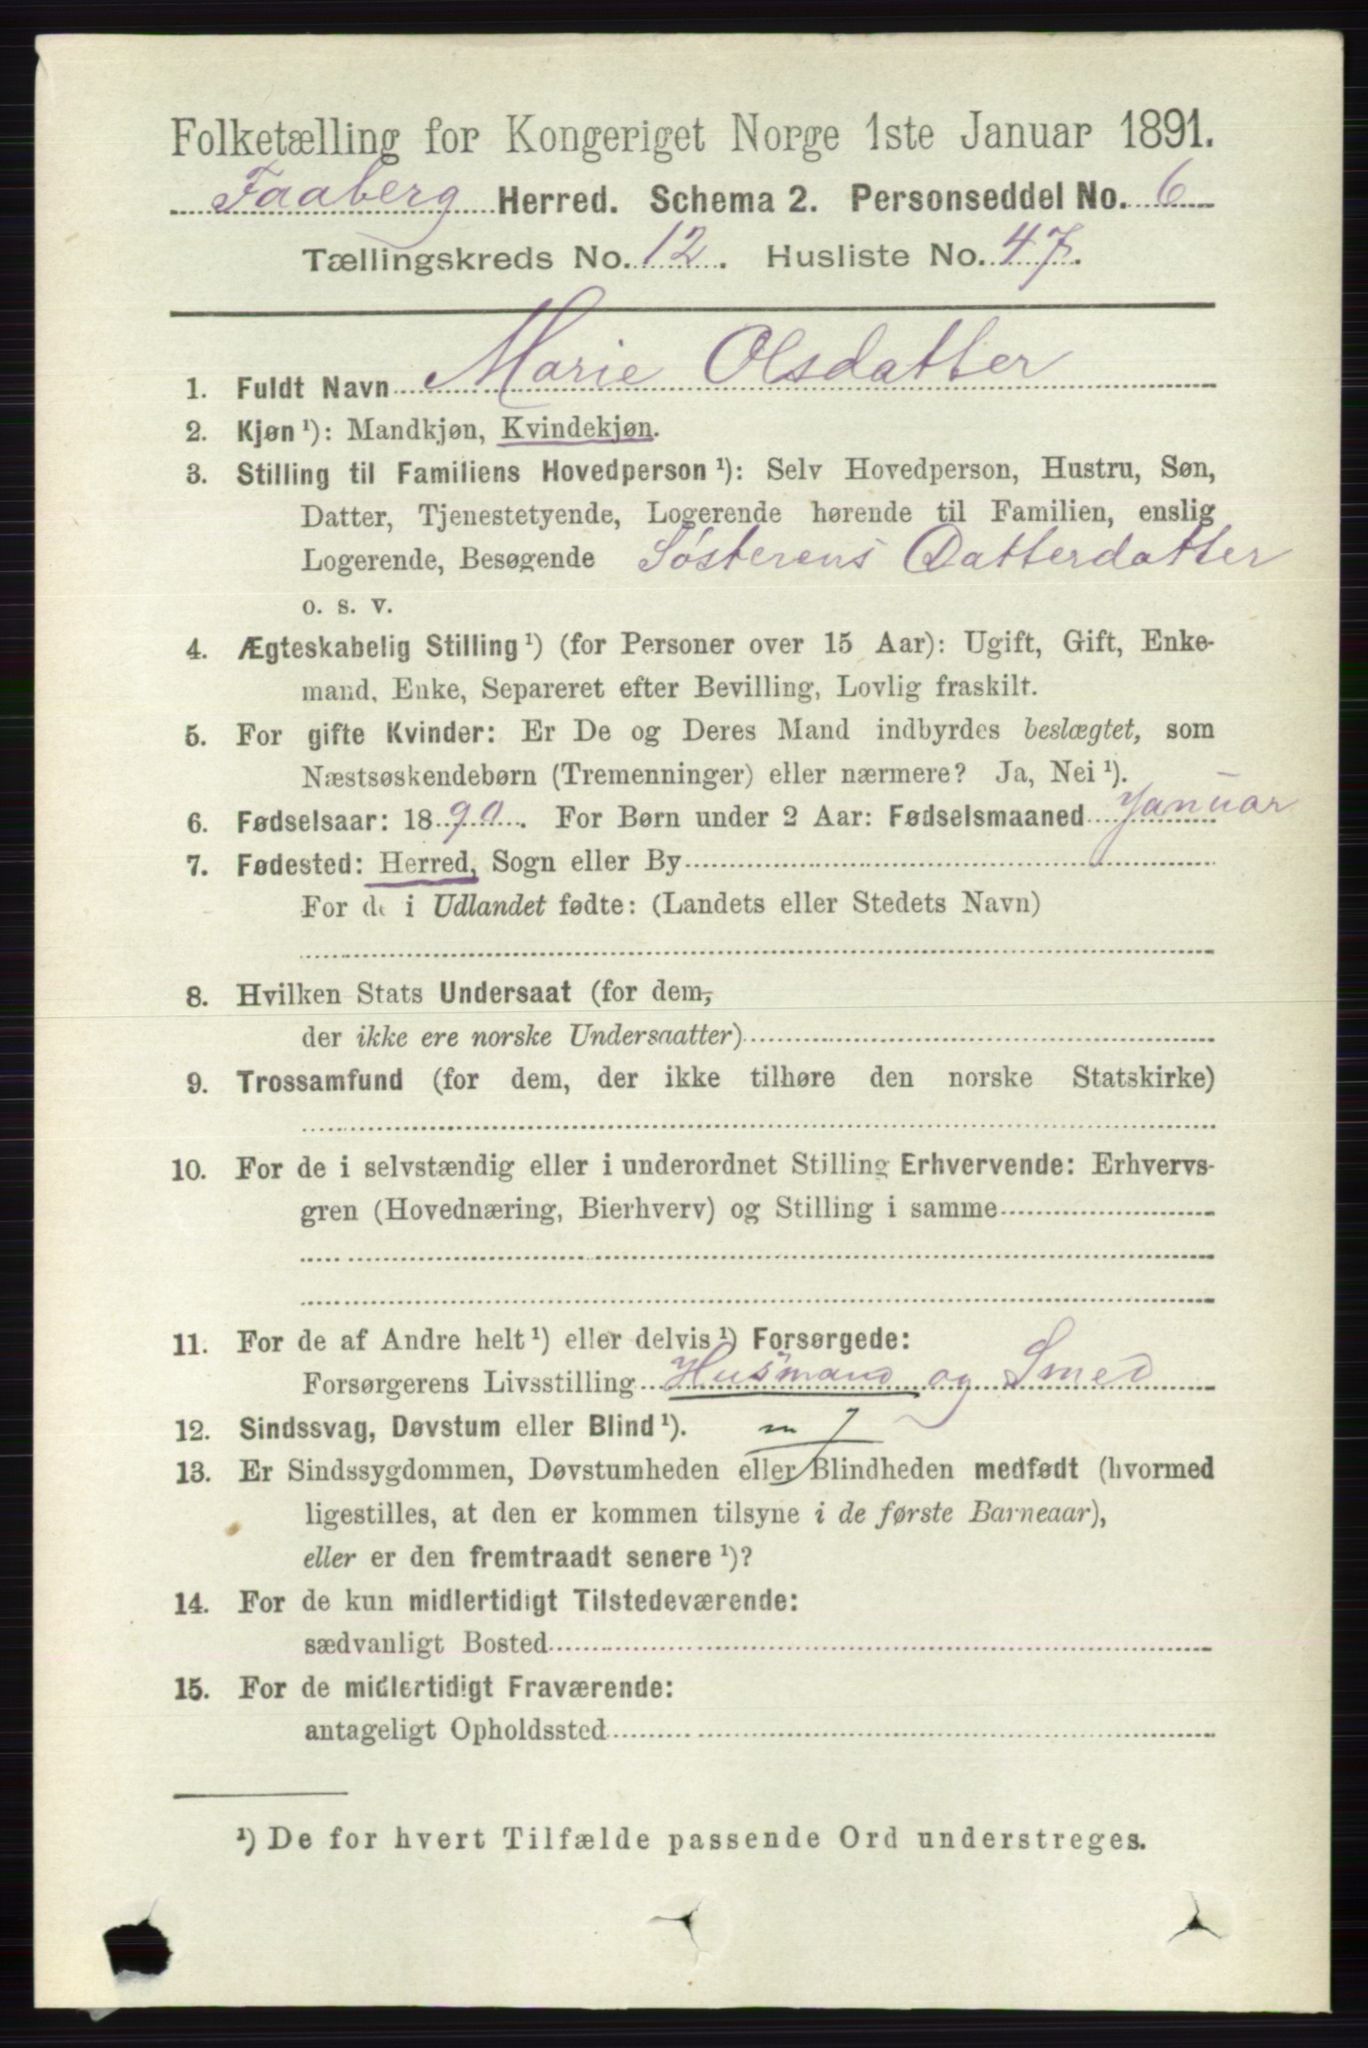 Folketælling for Kongeriget Norge 1ste Januar 1891.
Faaberg Herred. Schema 2. Personseddel No. 6
Tællingskreds No. 12. Husliste No. 47.
1. Fuldt Navn Marie Olsdatter
2. Kjøn ¹): Mandkjøn, Kvindekjøn.
3. Stilling til Familiens Hovedperson ¹): Selv Hovedperson, Hustru, Søn,
Datter, Tjenestetyende, Logerende hørende til Familien, enslig
Logerende, Besøgende Søsterens Datterdatter
o. s. v.
4. Ægteskabelig Stilling ¹) (for Personer over 15 Aar): Ugift, Gift, Enke-
mand, Enke, Separeret efter Bevilling, Lovlig fraskilt.
5. For gifte Kvinder: Er De og Deres Mand indbyrdes beslægtet, som
Næstsøskendebørn (Tremenninger) eller nærmere? Ja, Nei ¹).
6. Fødselsaar: 1890. For Børn under 2 Aar: Fødselsmaaned Januar
7. Fødested: Herred, Sogn eller By
For de i Udlandet fødte: (Landets eller Stedets Navn)
8. Hvilken Stats Undersaat (for dem,
der ikke ere norske Undersaatter)
9. Trossamfund (for dem, der ikke tilhøre den norske Statskirke)
10. For de i selvstændig eller i underordnet Stilling Erhvervende: Erhvervs-
gren (Hovednæring, Bierhverv) og Stilling i samme
11. For de af Andre helt ¹) eller delvis ¹) Forsørgede:
Forsørgerens Livsstilling Husmand og Smed
12. Sindssvag, Døvstum eller Blind ¹).
13. Er Sindssygdommen, Døvstumheden eller Blindheden medfødt (hvormed
ligestilles, at den er kommen tilsyne i de første Barneaar),
eller er den fremtraadt senere ¹)?
14. For de kun midlertidigt Tilstedeværende:
sædvanligt Bosted
15. For de midlertidigt Fraværende:
antageligt Opholdssted
¹) De for hvert Tilfælde passende Ord understreges.